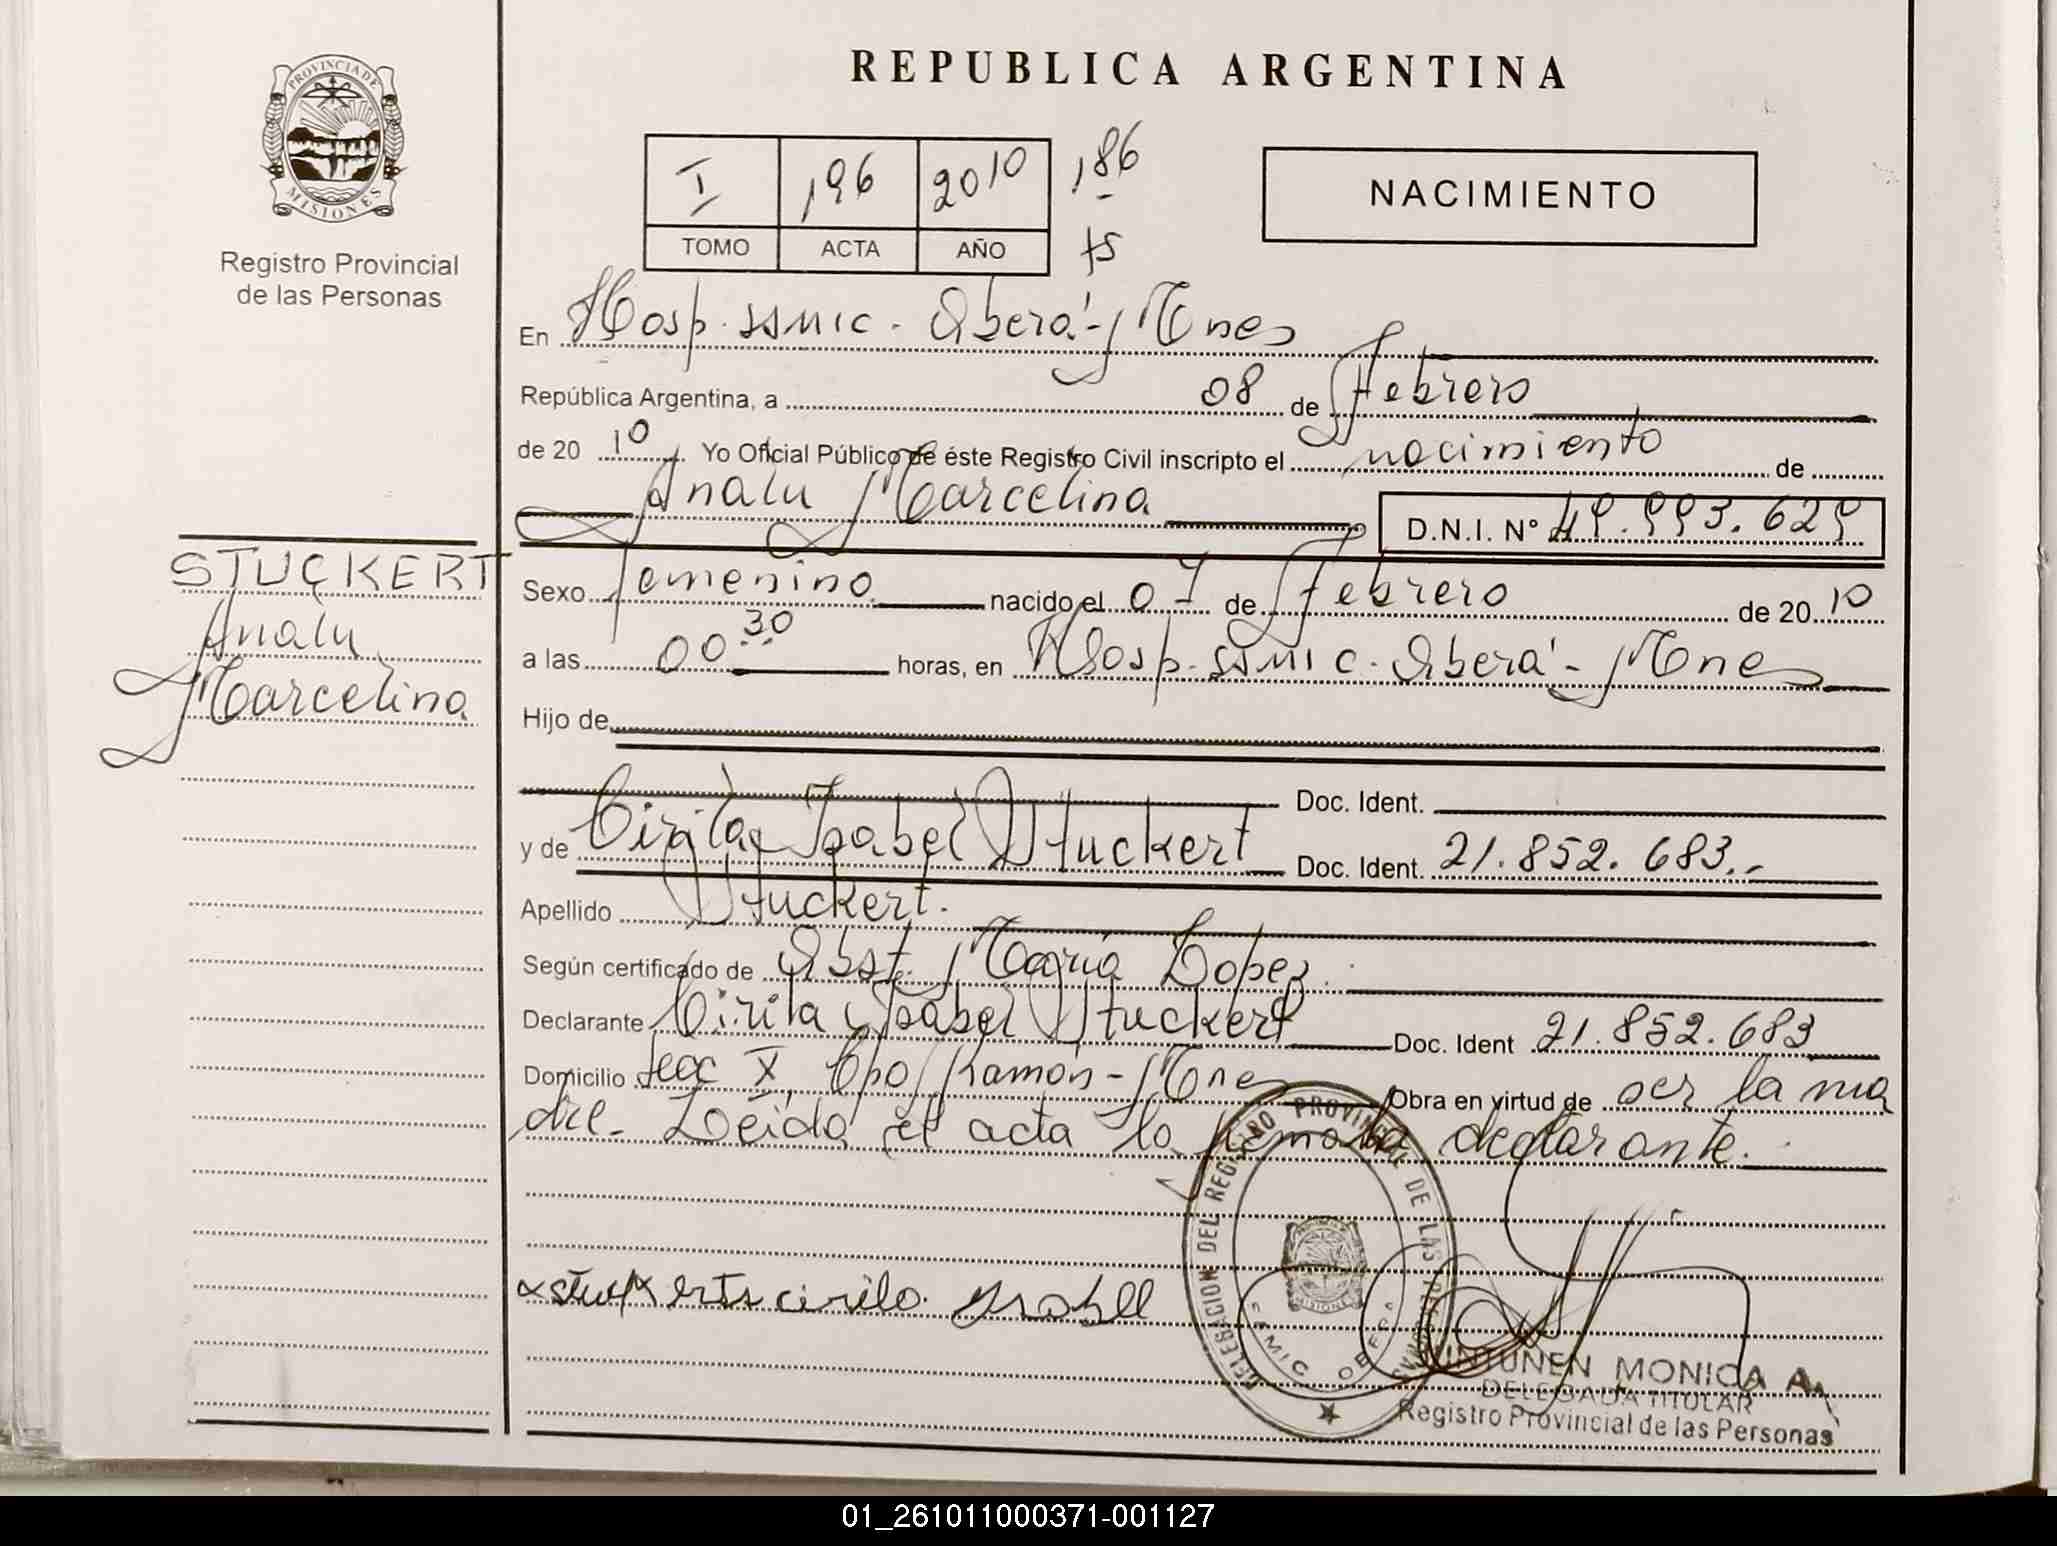 PROVINCIA DE
MISIONES
Registro Provincial
de las Personas
REPUBLICA ARGENTINA
NACIMIENTO
I 196 2010 186
TOMO ACTA AÑO
En Hosp. SSMIC. Oberá - Mnes
República Argentina, a 08 de Febrero
de 20 10 Yo Oficial Público de éste Registro Civil inscripto el nacimiento de
Analu Marcelina D.N.I. Nº 49.993.629
STUCKERT
Analu
Marcelina
Sexo femenino nacido el 07 de Febrero de 20 10
a las 00 30 horas, en Hosp. SSMIC. Oberá - Mnes
Hijo de
Doc. Ident.
y de Cirila Isabel Stuckert Doc. Ident. 21.852.683.-
Apellido Stuckert.
Según certificado de Obst. María Lopez.
Declarante Cirila Isabel Stuckert Doc. Ident 21.852.683
Domicilio Secc X Cpo Ramón - Mnes Obra en virtud de ser la ma
dre. Leída el acta la firma la declarante.
DELEGACION DEL REGISTRO PROVINCIAL DE LAS PERSONAS
MISIONES
SAMIC OBERA
Cirila
MONICA A.
DELEGADA TITULAR
Registro Provincial de las Personas
01_261011000371-001127